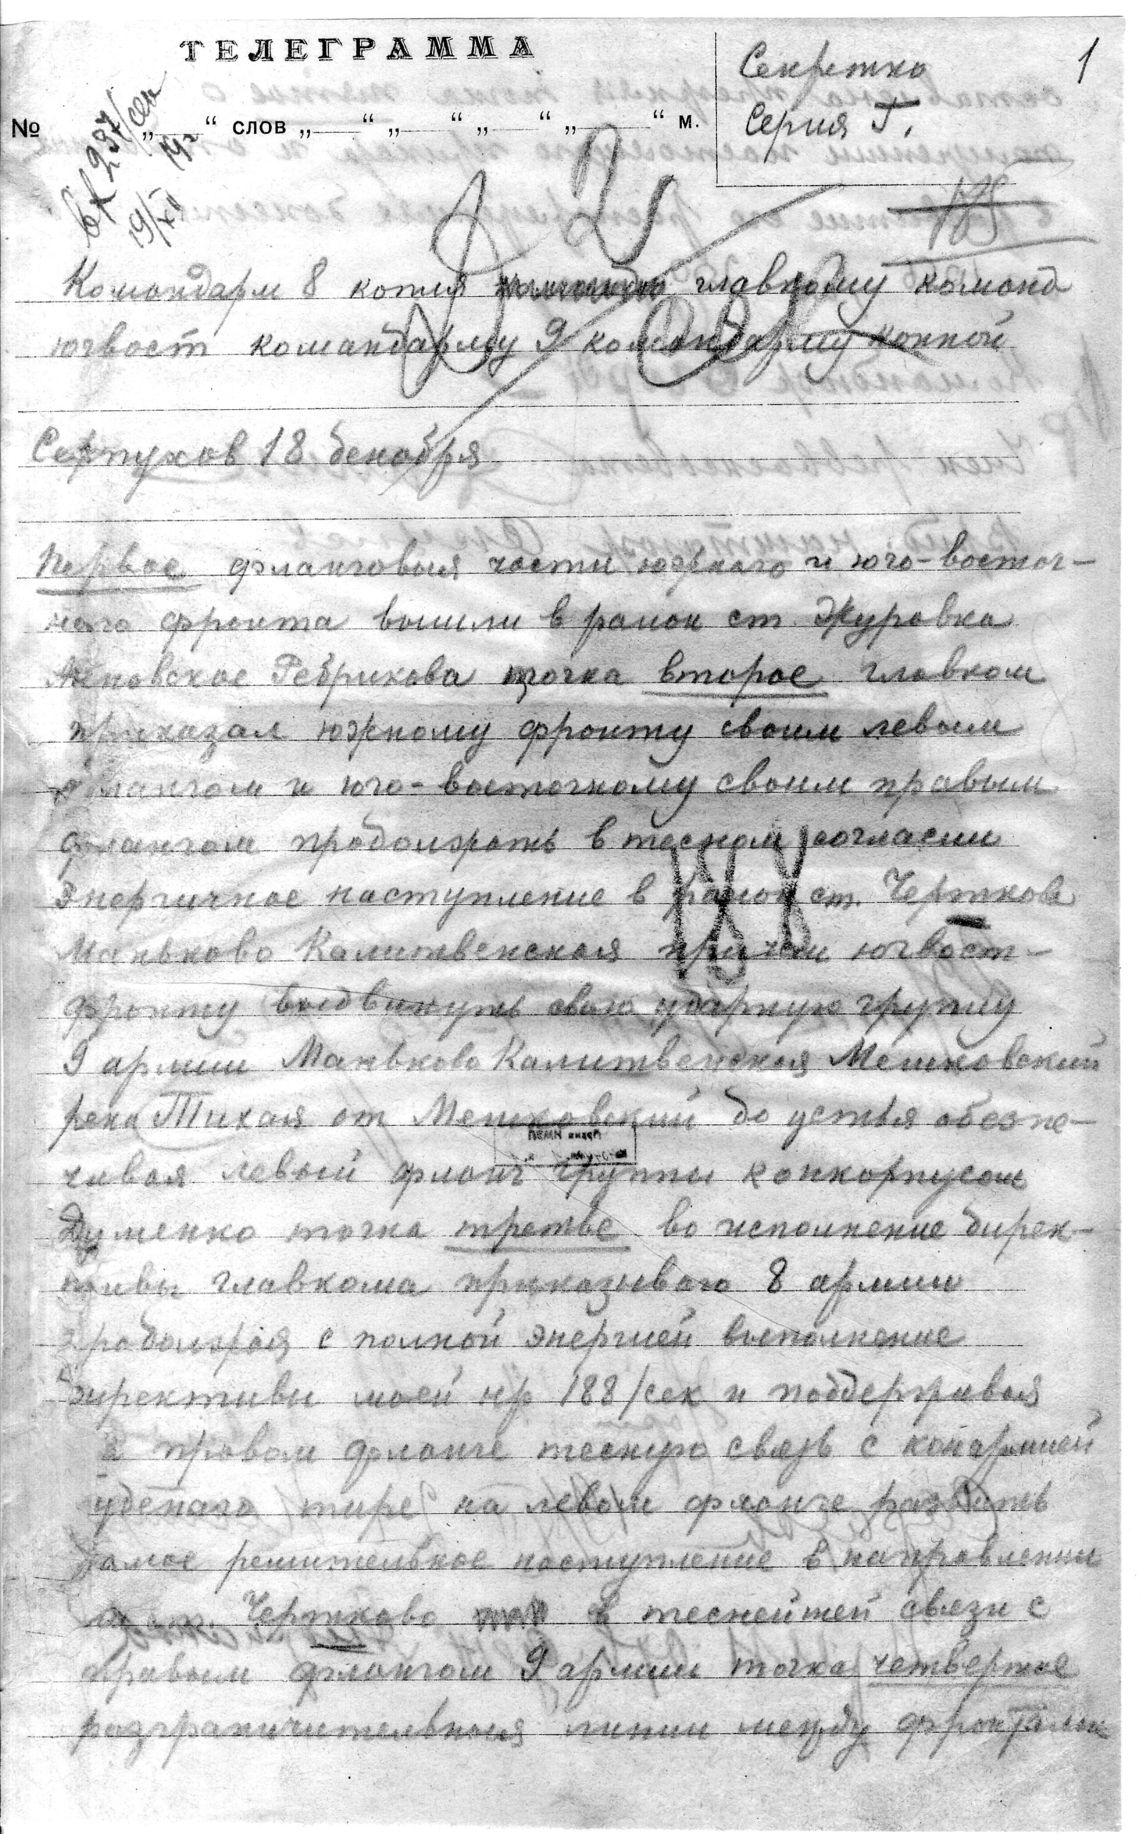 ТЕЛЕГРАММА
Секретно
Серия Г.
1
№ „ “ слов „ “ „ “ „ “ „ “ м.
Вх 237/сек
19/XII 19 г
Командарм 8 копия главкому команд
югвост командарму 9 командарму конной
Серпухов 18 декабря
Первое фланговыя части южнаго и юго-восточ-
наго фронта вышли в район ст. Журавка
Ребрикова точка второе главком
приказал южному фронту своим левым
флангом и юго-восточному своим правым
флангом продолжать в тесном согласии
энергичное наступление в район ст. Чертково
Маньково Калитвенская причем югвост-
фронту выдвинуть свою ударную группу
9 армии Маньково Калитвенская Мешковский
река Тихая от Мешковский до устья обезпе-
чивая левый фланг группы конкорпусом
Думенко точка третье во исполнение дирек-
тивы главкома приказываю 8 армии
продолжая с полной энергией выполнение
директивы моей нр 188/сек и поддерживая
на правом фланге тесную связь с конармией
тире на левом фланге развить
самое решительное наступление в направлении
на ст. Чертково в теснейшей связи с
правым флангом 9 армии точка четвертое
разграничительная линии между фронтами
188